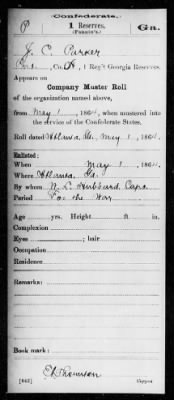 Confederate.
P 1 Reserves. Ga.
(Fannin's.)
J. C. Parker
Co. A, 1 Reg't Georgia Reserves.
Appears on
Company Muster Roll
of the organization named above,
from May 1, 1864, when mustered into
the service of the Confederate States.
Roll dated Atlanta Ga, May 1, 1864.
Enlisted:
When May 1, 1864.
Where Atlanta, Ga.
By whom W. L. Hubbard, Capt.
Period For the War
Age yrs. Height ft. in.
Complexion
Eyes ; hair
Occupation
Residence
Remarks:
Book mark:
Thomson
(642) Copyist.